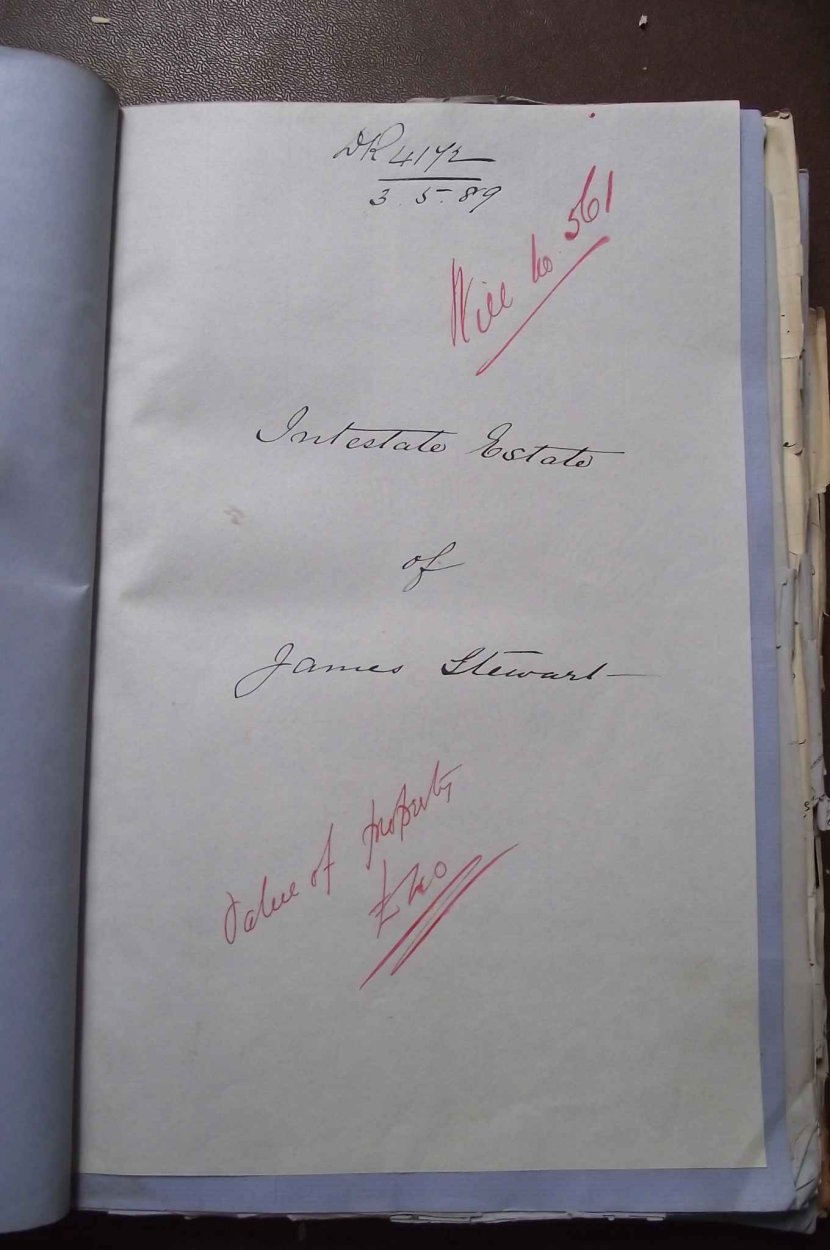 DR 4172
3.5.89
Will No. 561
Intestate Estate
of
James Stewart
Value of property
£40